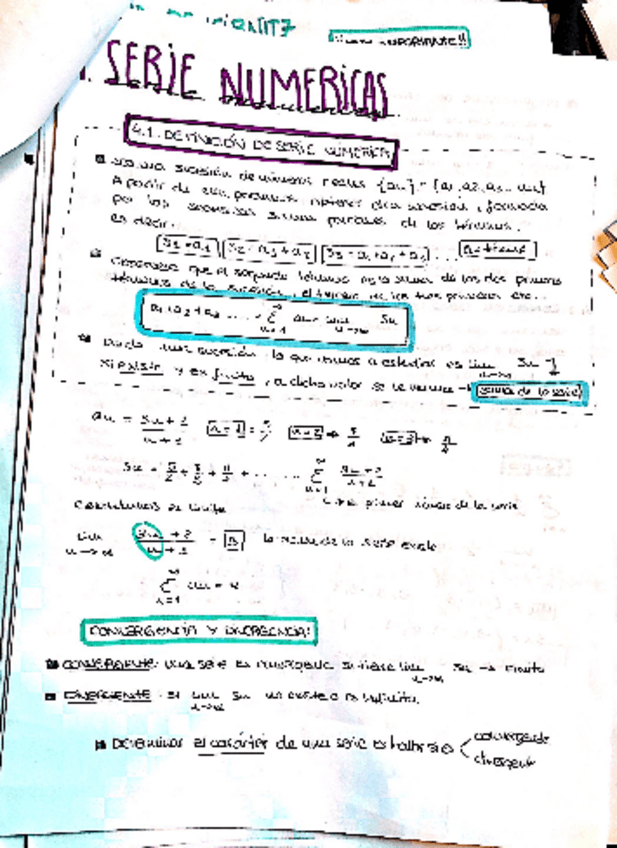 SERIE NUMERICAS
4.1. DEFINICIÓN DE SERIE NUMERICA
sucesión de números reales {an} = {a1, a2, a3 ... an}
A partir de ella, podemos obtener otra sucesión, formada
por las sucesivas sumas parciales de los términos,
es decir.
S1 = a1 S2 = a1 + a2 S3 = a1 + a2 + a3 ...
que el segundo término es la suma de los dos primeros
términos de la sucesión, el tercero de los tres primeros etc...
a1 + a2 + a3 .... = ∞ Σ n=1 an = lim n→∞ Sn
una sucesión lo que vamos a estudiar es lim n→∞ Sn
si existe y es finito, a dicho valor se le llama → suma de la serie
an = 3n+2 / n+1 n=1 = 5/2
Sn = 5/2 + 8/3 + 11/4 + ...... ∞ Σ n=1 3n+2 / n+1
primer término de la serie
Calculamos el límite
lim n→∞ 3n+2 / n+1 = 3 la suma de la serie existe
∞ Σ n=1 an =
CONVERGENCIA Y DIVERGENCIA:
CONVERGENTE: una serie es convergente si tiene lim n→∞ Sn → finito
DIVERGENTE: si lim n→∞ Sn no existe o es infinito.
Determinar el carácter de una serie es hallar si es convergente
divergente